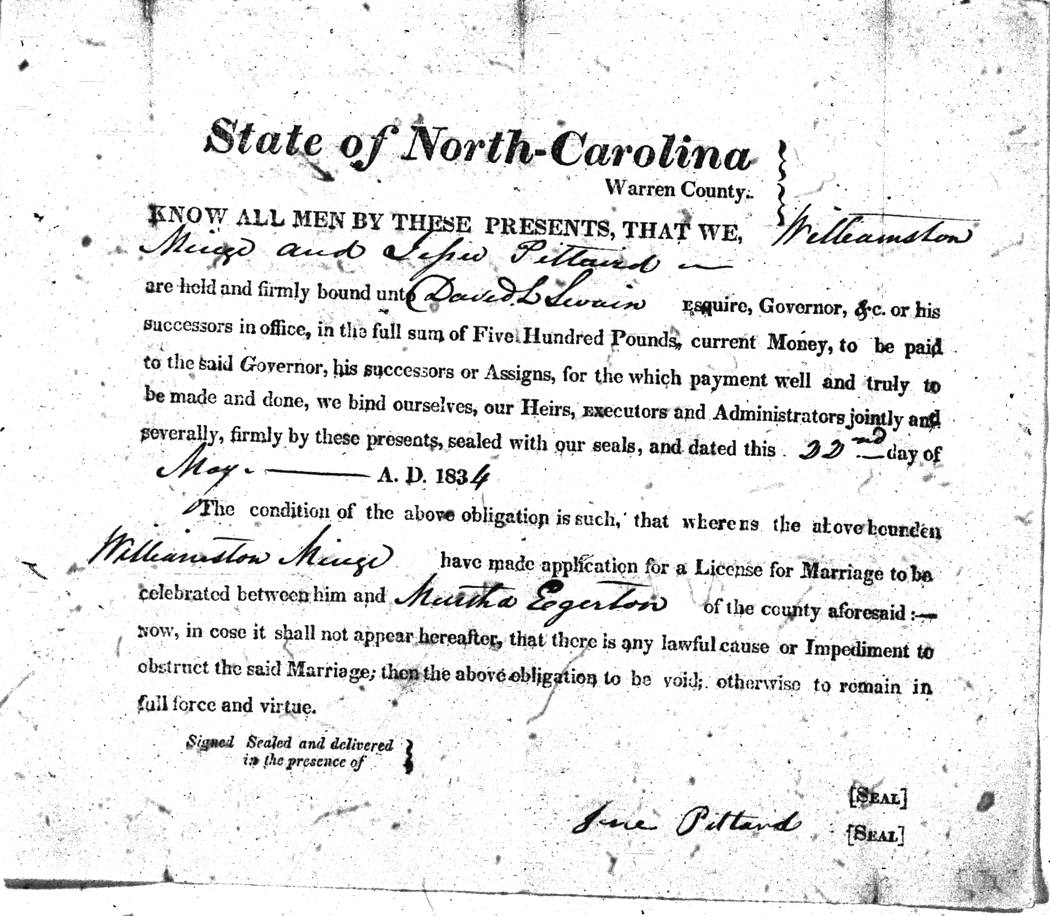 State of North-Carolina
Warren County.
KNOW ALL MEN BY THESE PRESENTS, THAT WE, Williamston
Minge and Jesse Pittard
are held and firmly bound unto David L Swain Esquire, Governor, &c. or his
successors in office, in the full sum of Five Hundred Pounds, current Money, to be paid
to the said Governor, his successors or Assigns, for the which payment well and truly to
be made and done, we bind ourselves, our Heirs, Executors and Administrators jointly and
severally, firmly by these presents, sealed with our seals, and dated this 22nd day of
May. A. D. 1834
The condition of the above obligation is such, that whereas the above bounden
Williamston Minge have made application for a License for Marriage to be
celebrated between him and Martha Egerton of the county aforesaid:—
now, in case it shall not appear hereafter, that there is any lawful cause or Impediment to
obstruct the said Marriage; then the above obligation to be void; otherwise to remain in
full force and virtue.
Signed Sealed and delivered
in the presence of
[SEAL]
Pittard [SEAL]